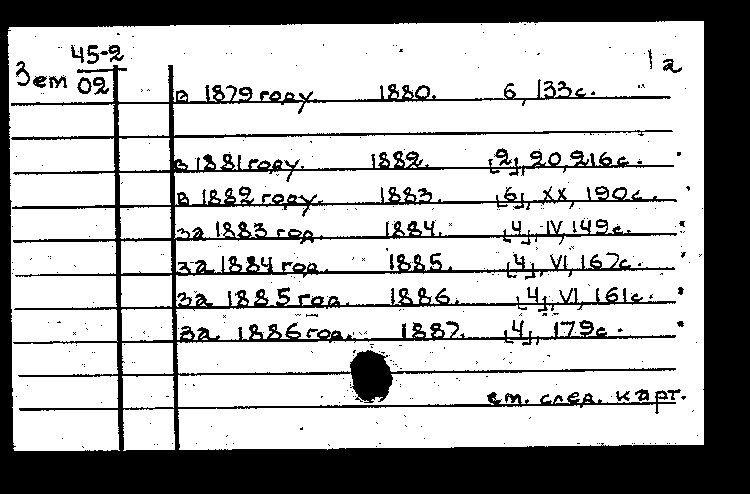 Зем 45-2
02
1а
в 1879 году. 1880. 6, 133с.
в 1881 году. 1882. [2], 20, 216с.
в 1882 году. 1883. [6], XX, 190с.
за 1883 год. 1884. [4], IV, 149с.
за 1884 год. 1885. [4], VI, 167с.
за 1885 год. 1886. [4], VI, 161с.
за 1886 год. 1887. [4], 179с.
см. след. карт.